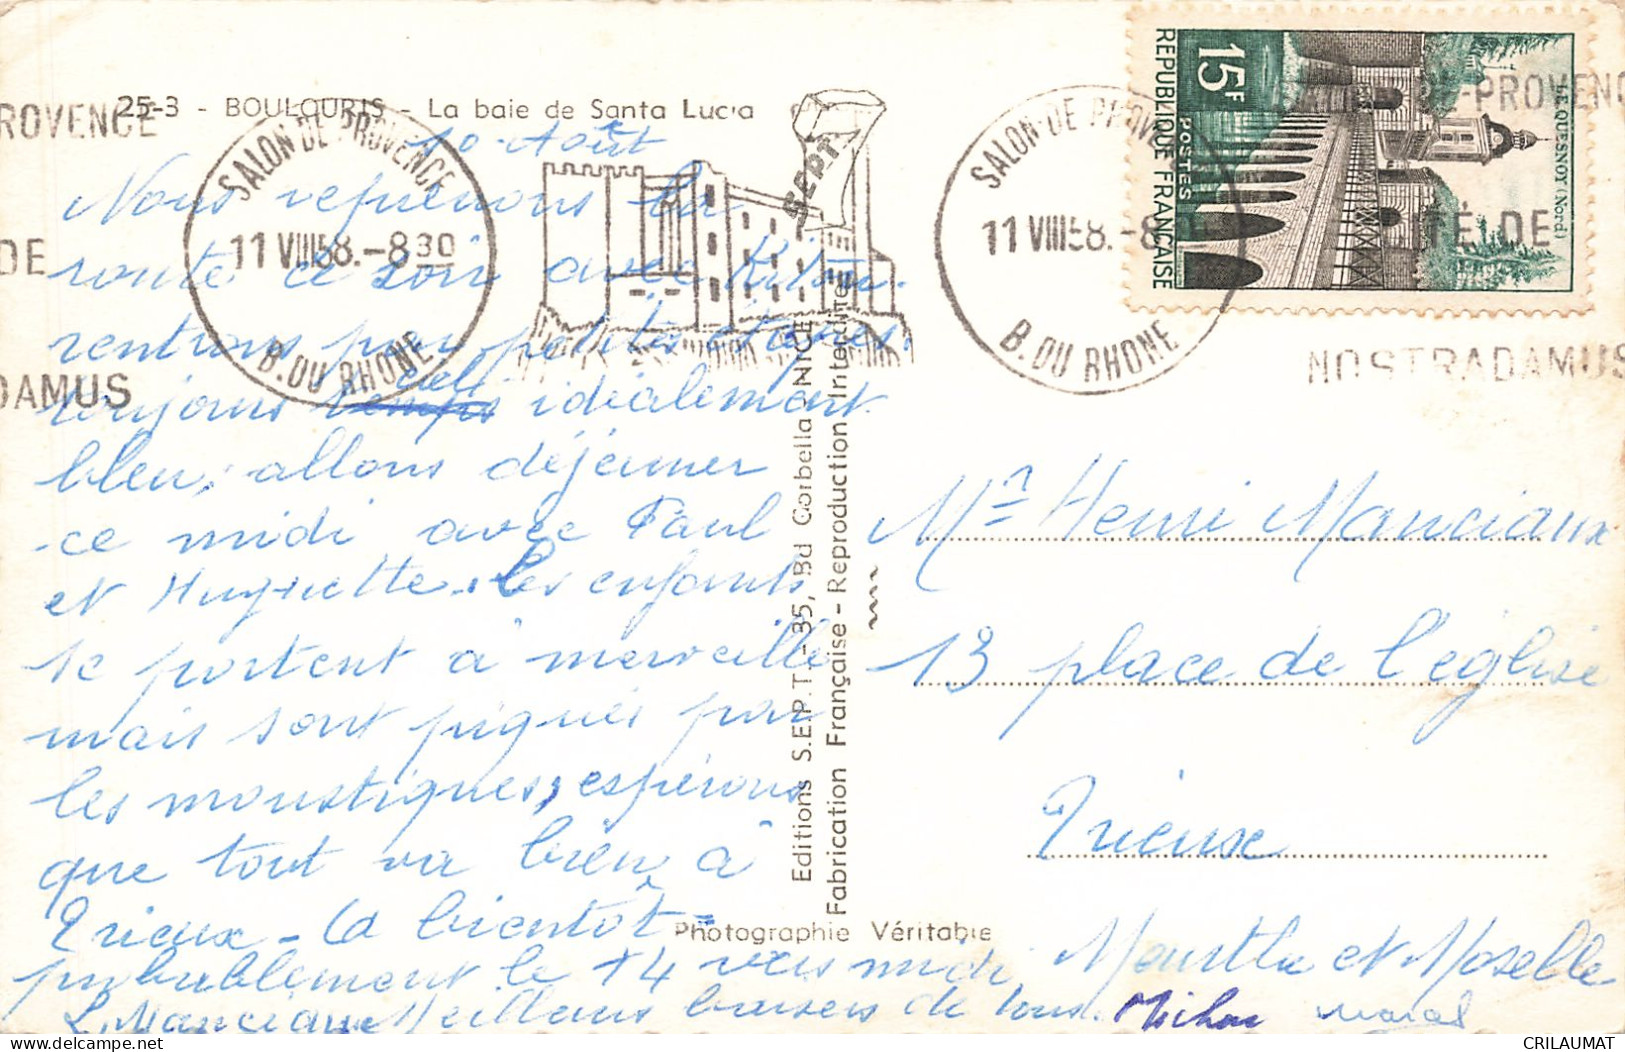 25-3 - BOULOURIS - La baie de Santa Lucia
10 Août
Nous reprenons la
route ce soir avec
rentrons par petites étapes.
toujours ciel idéalement
bleu, allons déjeuner
ce midi avec Paul
et Huguette. Les enfants
se portent à merveille
mais sont piqués par
les moustiques, espérons
que tout va bien à
Trieux - A bientôt -
probablement le 14 vers midi
L. Manciaux Meilleurs baisers de tous.
marcel
SALON DE PROVENCE
11 VIII 58. - 8 30
B. DU RHONE
SEPT.
SALON DE PROVENCE
11 VIII 58. - 8
B. DU RHONE
ROVENCE
DE
DAMUS
DE-PROVENC
TÉ DE
NOSTRADAMUS
REPUBLIQUE FRANÇAISE
15F
POSTES
LE QUESNOY (Nord)
Editions S.E.P.T. - 35, Bd Corbella - NICE
Fabrication Française - Reproduction Interdite
Photographie Véritable
Mr Henri Manciaux
13 place de l'église
Trieux
Meurthe et Moselle
CRILAUMAT